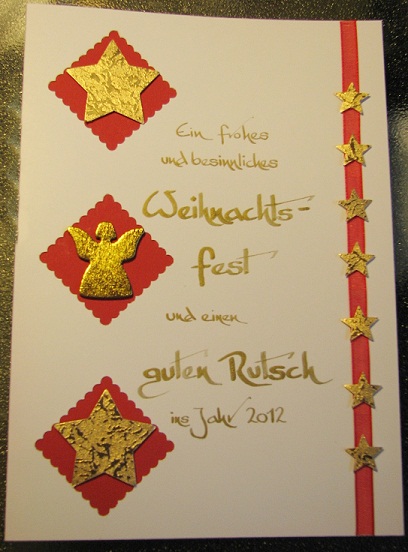 Ein frohes
und besinnliches
Weihnachts-
fest
und einen
guten Rutsch
ins Jahr 2012